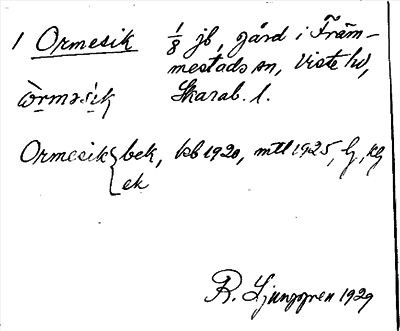 1 Ormesik 1/8 jb, gård i Främ-
mestads sn, Viste hd,
Skarab. l.
Ormesik { bek, kb 1920, mtl 1925, lj, kg
ek
R. Ljunggren 1929